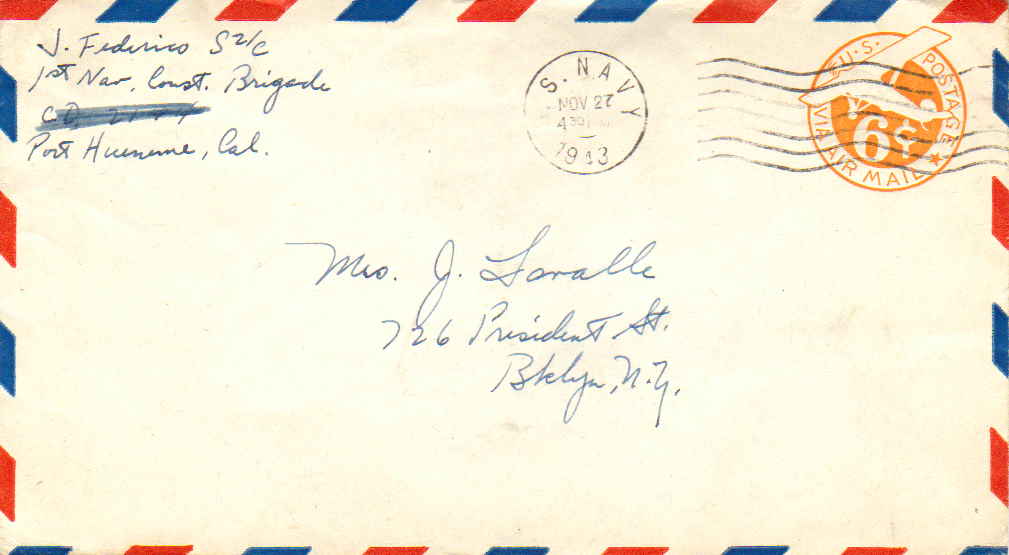 J. Federico S 2/c
1st Nav. Const. Brigade
Port Hueneme, Cal.
S. NAVY
NOV 27
4
1943
U.S. POSTAGE
6¢
VIA AIR MAIL
Mrs. J. Lavalle
726 President St.
Bklyn, N.Y.